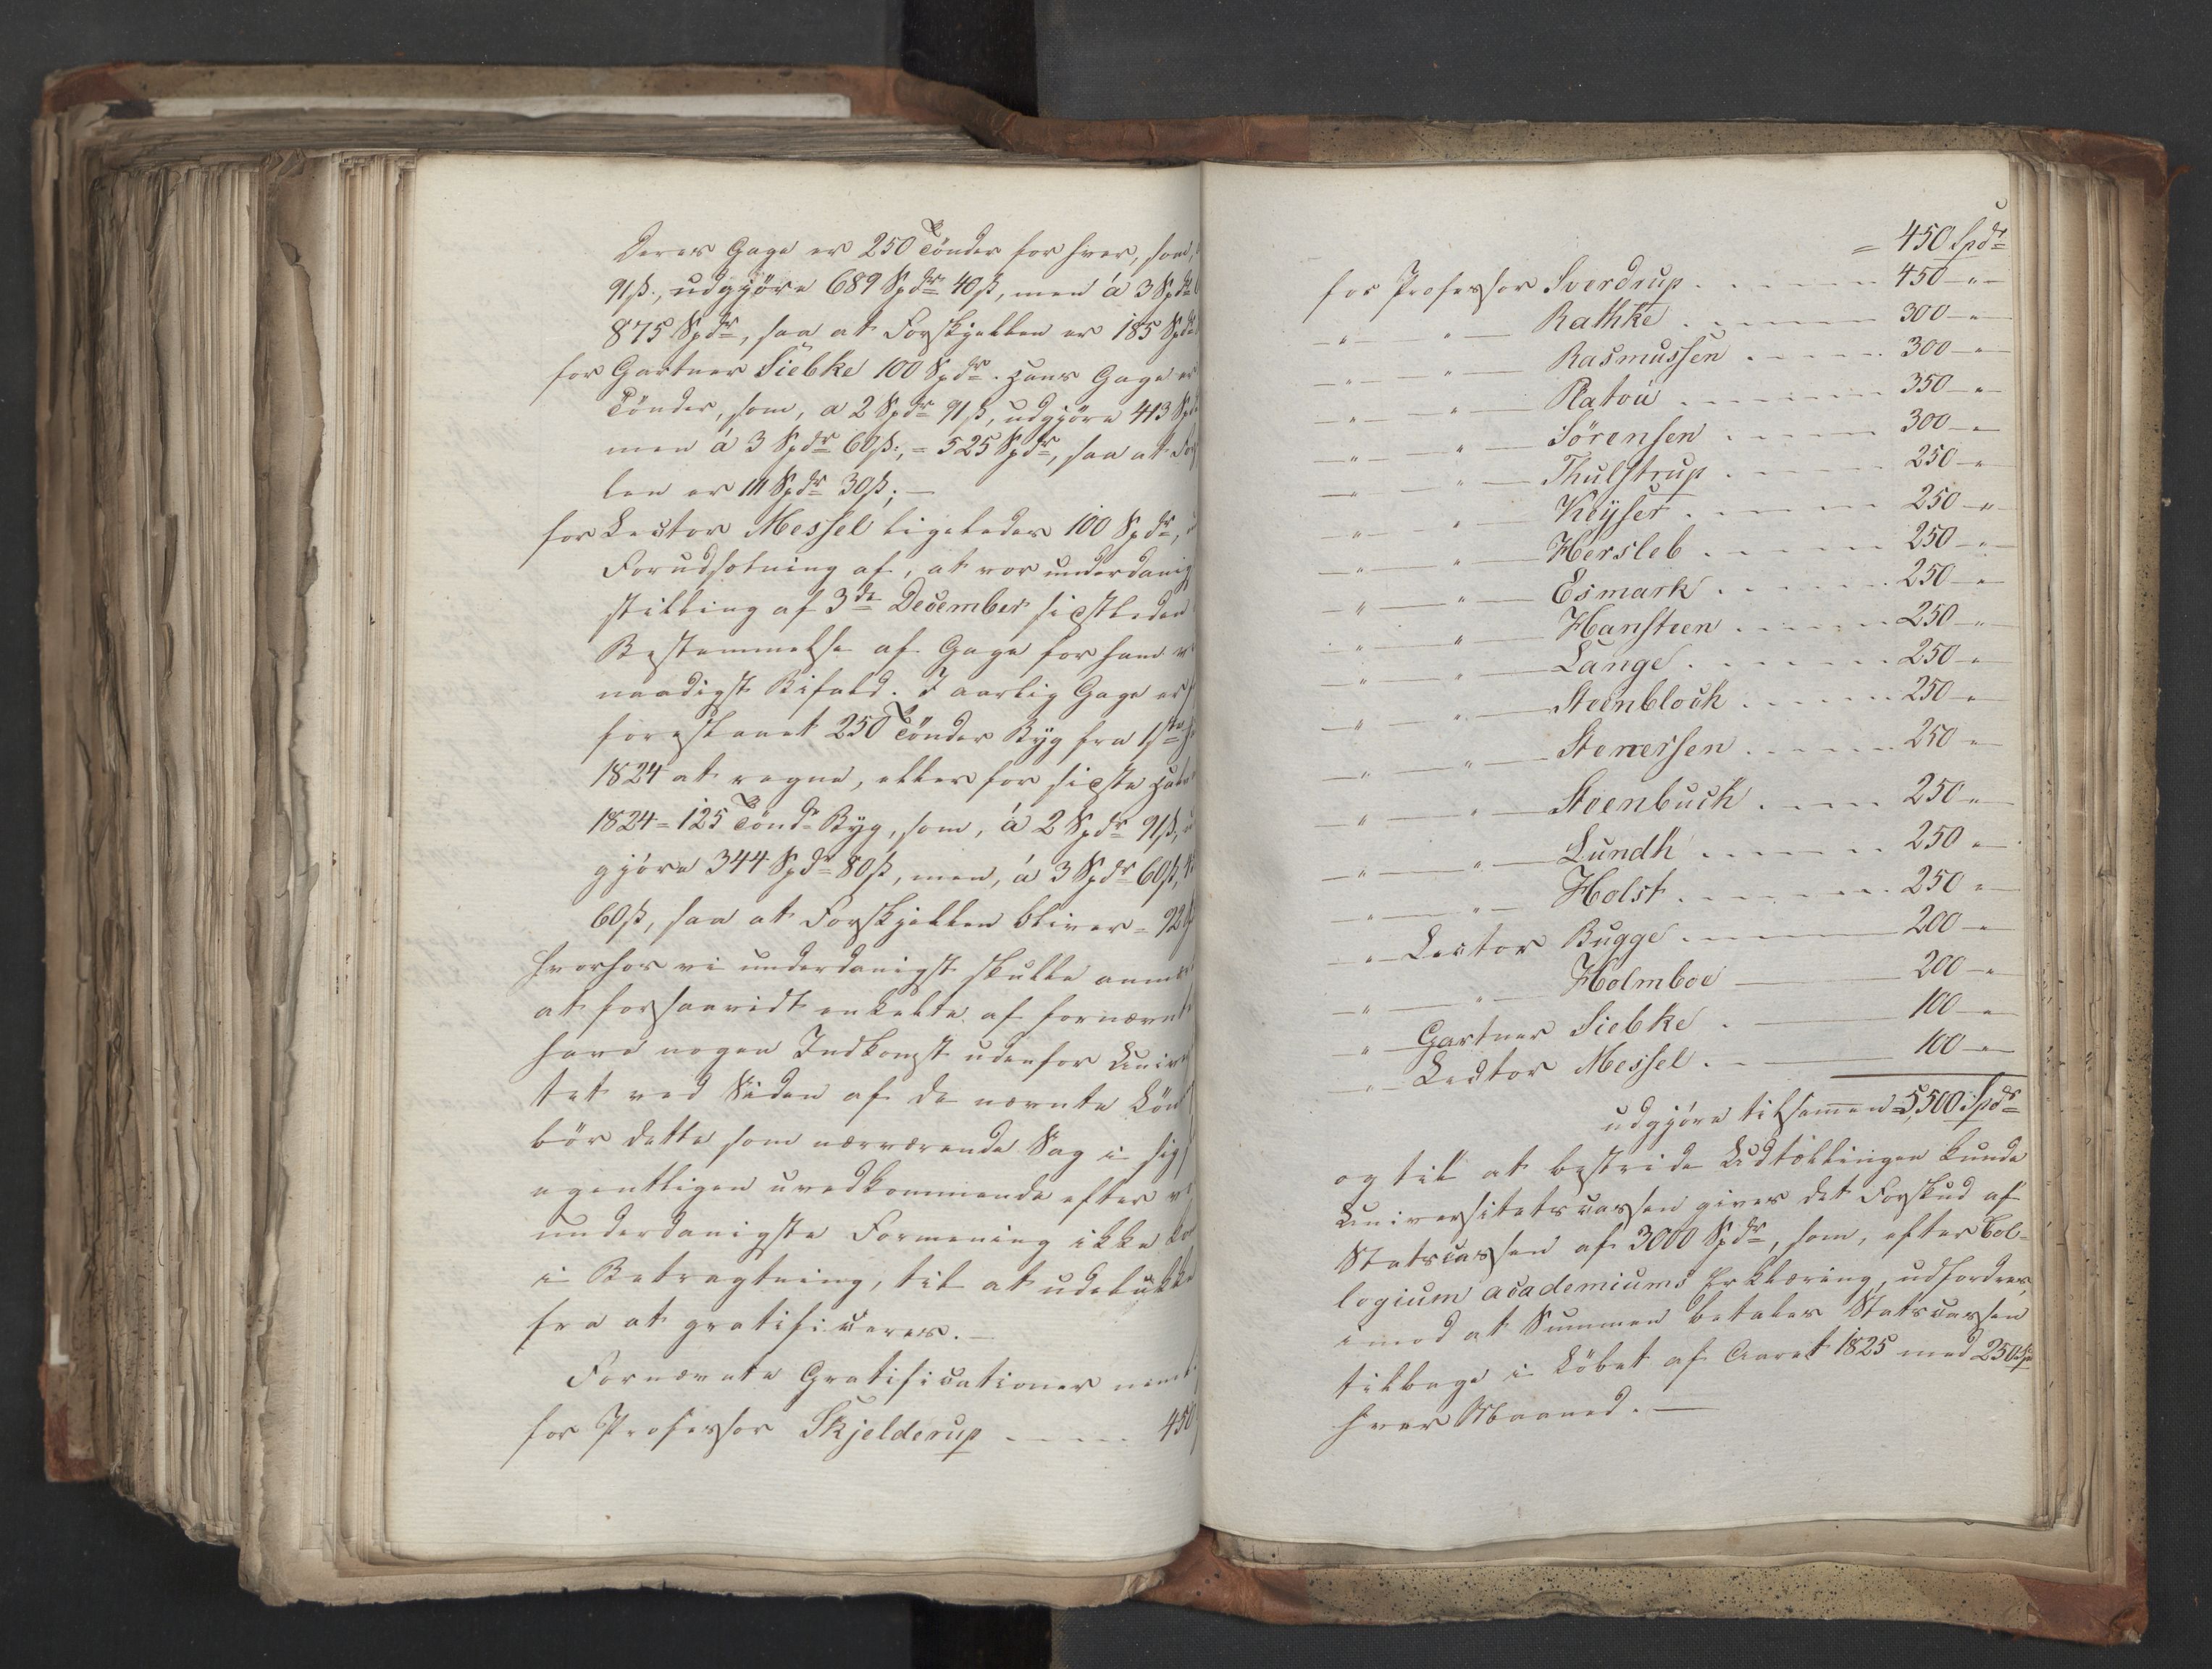 Deres Gage er 250 Tønder for hver, som,
91ß., udgjøre 689 Spdr 40ß, men á 3 Spdr
875 Spdr, saa at Forskjellen er 185 Spdr
for Gartner Siebke 100 Spdr. Hans Gage er
Tönder, som, a 2 Spdr 91ß, udgjöre 413 Spdr
men á 3 Spdr 60ß., = 525 Spdr, saa at
len er 111 Spdr 30ß. —
for Lector Messel ligeledes 100 Spdr,
Forudsætning af, at vor underdanig
stilling af 3de December sidstleden
Bestemmelse af Gage for ham
naadigst Bifald. I aarlig Gage er
foreslaaet 250 Tönder Byg fra 1ste
1824 at regne, eller for sidste Halv
1824 = 125 Tönd. Byg, som, á 2 Spdr 91ß,
gjöre 344 Spdr 80ß, men, á 3 Spdr 60ß,
60ß, saa at Forskjellen bliver = 92
Hvorhos vi underdanigst skulle anmær
at forsaavidt enkelte af fornævnte
have nogen Indkomst udenfor Univer
tet ved Siden af de nævnte Løn
bör dette som nærværende Sag i sig
egentligen uvedkommende efter
underdanigste Formening ikke
i Betragtning, til at udelukke
fra at gratificeres. —
Fornævnte Gratificationer
for Professor Skjelderup - - - - 450
= 450 Spdr
for Professor Sverdrup . - - - - 450 - " -
- " - " - Rathke . - - - - 300 - " -
- " - " - Rasmussen . - - - - 300 - " -
- " - " - Platou . - - - - 350 - " -
- " - " - Sörensen . - - - - 300 - " -
- " - " - Thulstrup . - - - - 250 - " -
- " - " - Keyser . - - - - 250 - " -
- " - " - Hersleb . - - - - 250 - " -
- " - " - Esmark . - - - - 250 - " -
- " - " - Hansteen . - - - - 250 - " -
- " - " - Lange . - - - - 250 - " -
- " - " - Steenbloch . - - - - 250 - " -
- " - " - Stenersen . - - - - 250 - " -
- " - " - Steenbuch . - - - - 250 - " -
- " - " - Lundh . - - - - 250 - " -
- " - " - Holst . - - - - 250 - " -
- " - Lector Bugge . - - - - 200 - " -
- " - " - Holmboe - 200 - " -
- " - Gartner Siebke . - 100 - " -
- " - Lector Messel . - 100 - " -
udgjöre tilsamen = 5,500 Spdr
og til at bestride Udtællingen kunde
Universitetscassen gives det Forskud af
Statscassen af 3000 Spdr, som, efter Col-
legium academiums Erklæring, udfordres,
imod at Summen betales Statscassen
tilbage i Löbet af Aaret 1825 med 250 Spd
hver Maaned. —